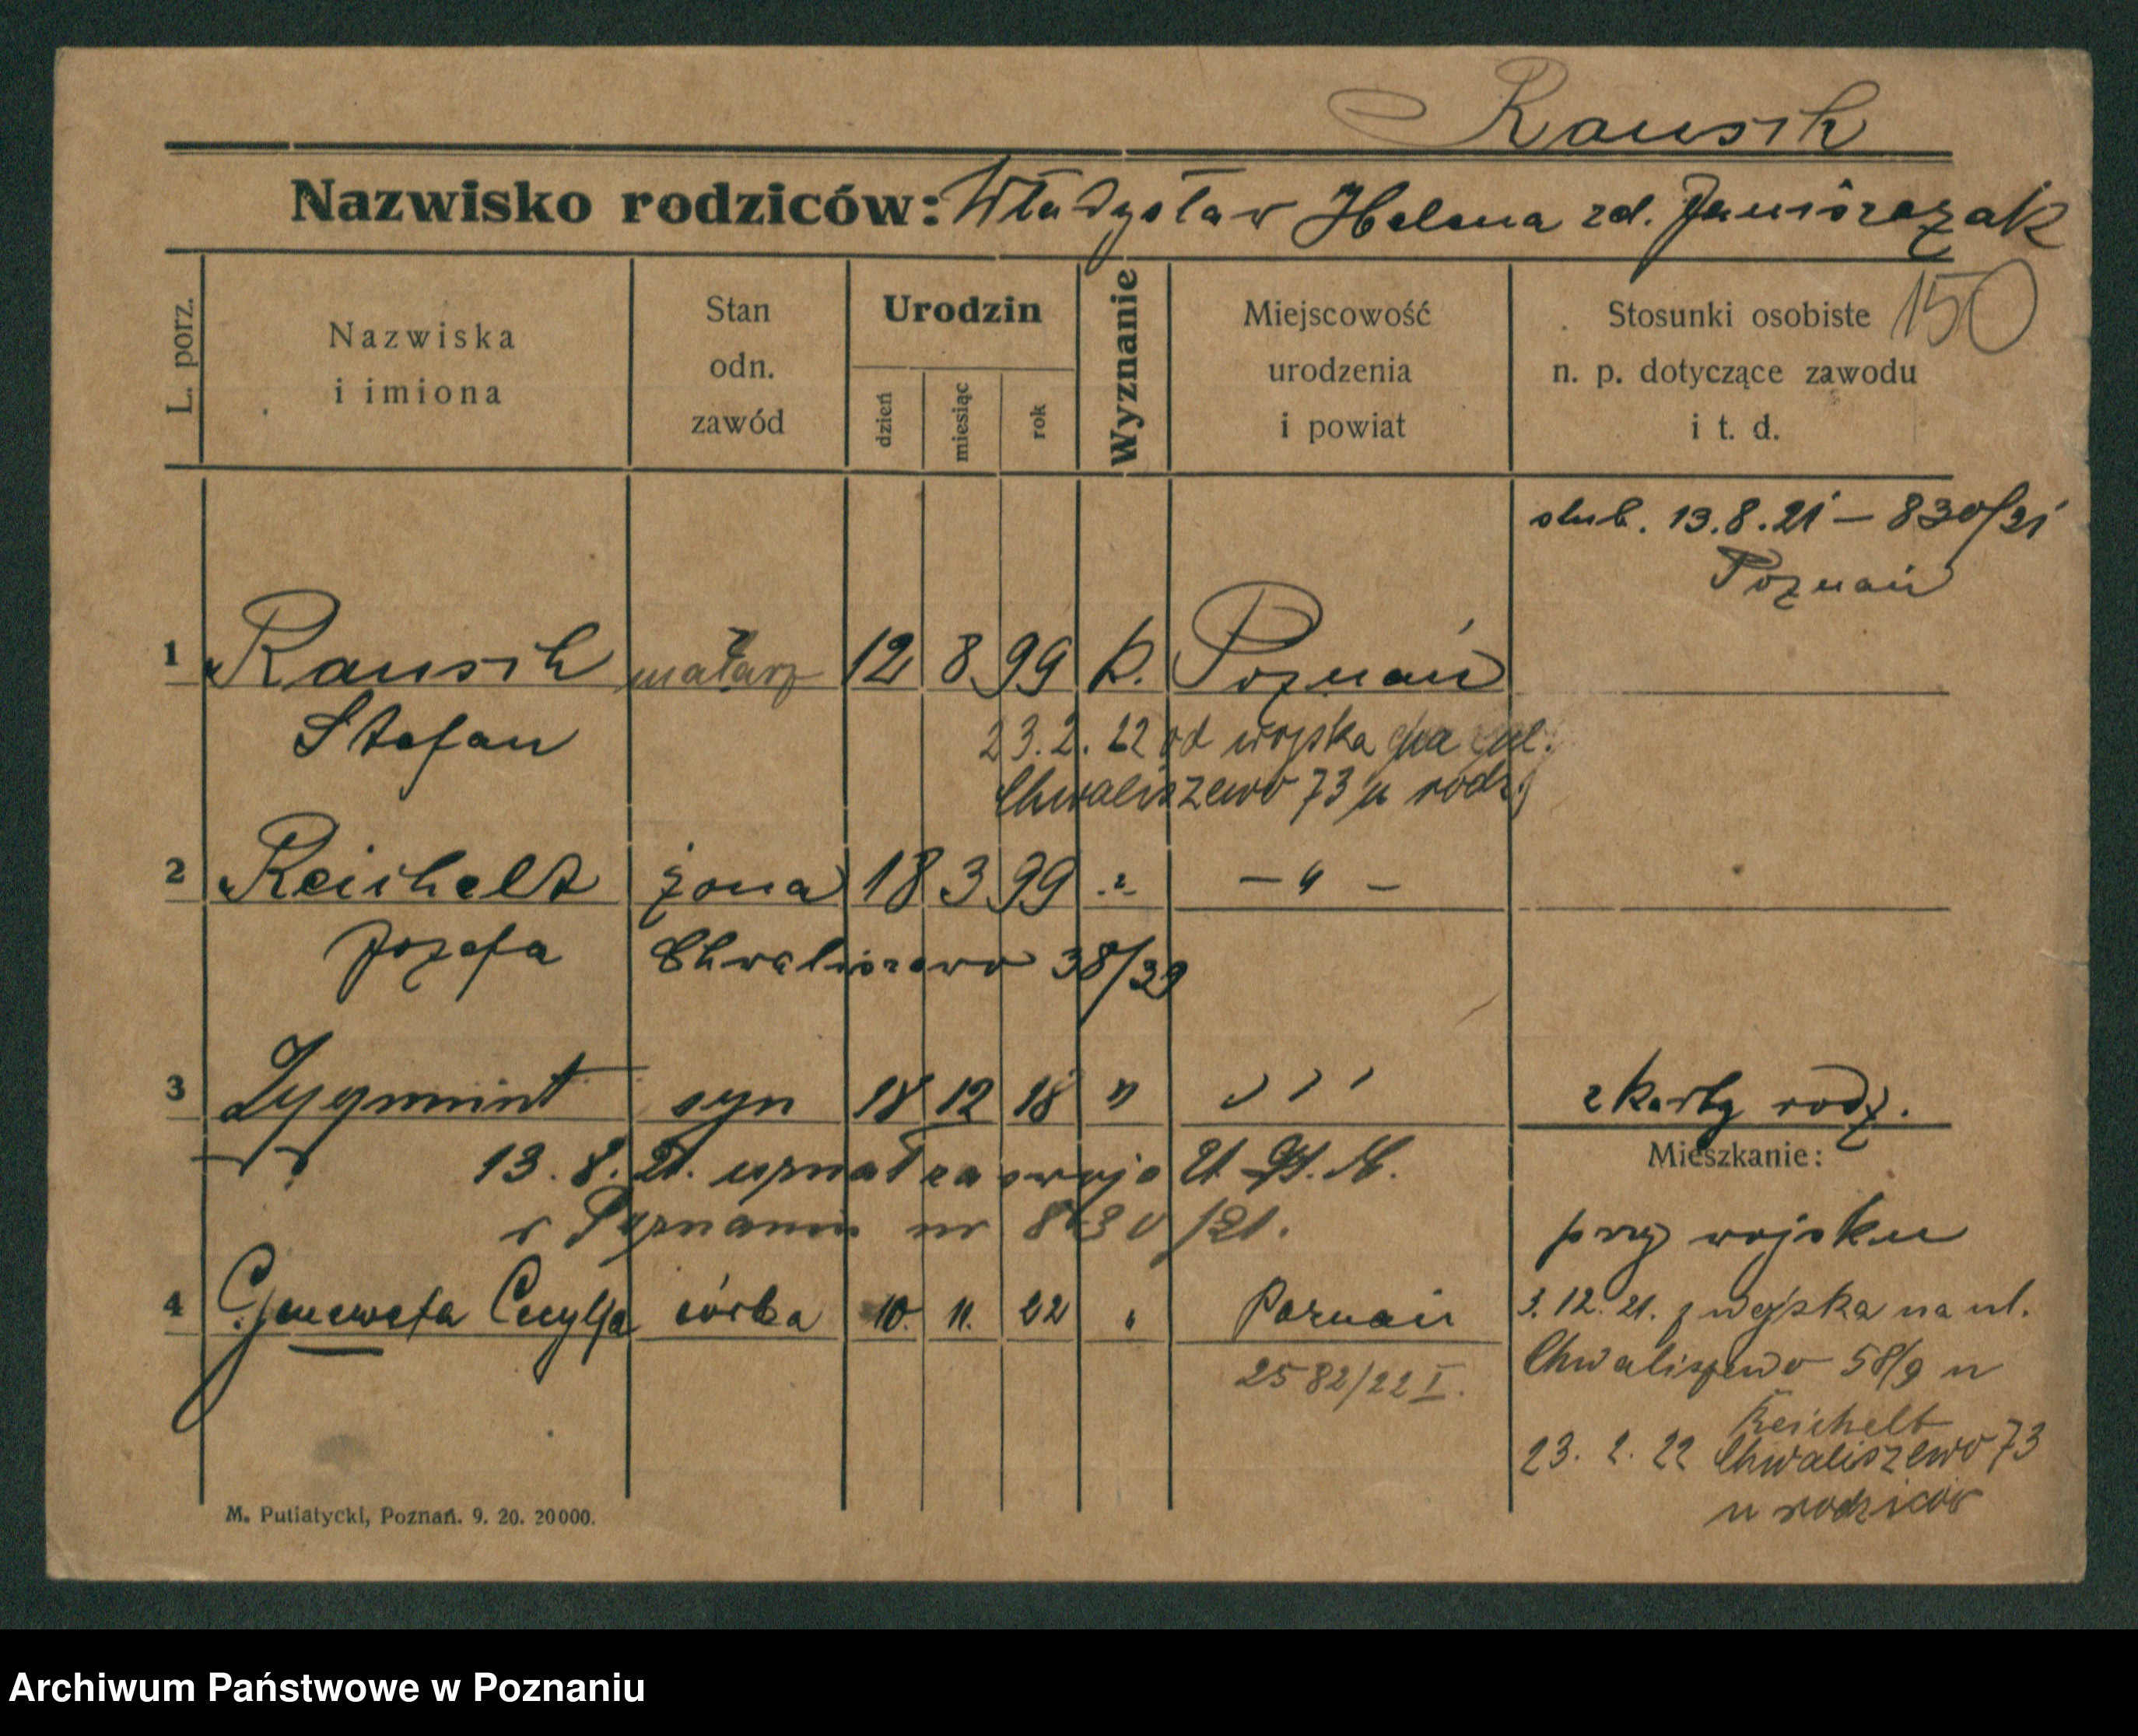 Rausch
Nazwisko rodziców: Władysław Helena zd. Janiszczak
150
L. porz.
Nazwiska
i imiona
Stan
odn.
zawód
Urodzin
dzień
miesiąc
rok
Wyznanie
Miejscowość
urodzenia
i powiat
Stosunki osobiste
n. p. dotyczące zawodu
i t. d.
ślub. 13.8.21 – 830/21
Poznań
1 Rausch malarz 12 8 99 k. Poznań
Stefan
23.2.22 od wojska na ul.
Chwaliszewo 73 u rodz.
2 Reichelt żona 18 3 99 " – " –
Józefa Chwaliszewo 38/39
3 Zygmunt syn 18 12 18 " " " z karty rodz.
13.8.21. uznał za swoje U. St. C.
w Poznaniu nr 830/21.
Mieszkanie:
przy wojsku
4 Genowefa Cecylja córka 10. 11. 22 " Poznań
2582/22 I.
3.12.21. z wojska na ul.
Chwaliszewo 58/9 u
Reichelt
23. 2. 22 Chwaliszewo 73
u rodziców
M. Putiatycki, Poznań. 9. 20. 20000.
Archiwum Państwowe w Poznaniu